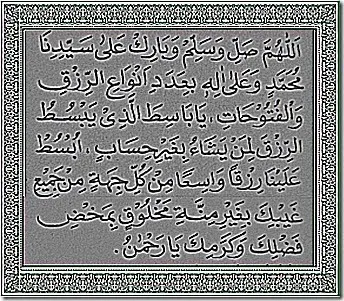 اَللّٰهُمَّ صَلِّ وَسَلِّمْ وَبَارِكْ عَلٰى سَيِّدِنَا
مُحَمَّدٍ وَعَلٰى اٰلِهِ بِعَدَدِ اَنْوَاعِ الرِّزْقِ
وَالْفُتُوْحَاتِ ، يَا بَاسِطَ الَّذِىْ يَبْسُطُ
الرِّزْقَ لِمَنْ يَشَاءُ بِغَيْرِ حِسَابٍ ، اُبْسُطْ
عَلَيْنَا رِزْقًا وَاسِعًا مِنْ كُلِّ جِهَةٍ مِنْ جَمِيْعِ
غَيْبِكَ بِغَيْرِ مِنَّةِ مَخْلُوْقٍ بِمَحْضِ
فَضْلِكَ وَكَرَمِكَ يَا رَحْمٰنُ .